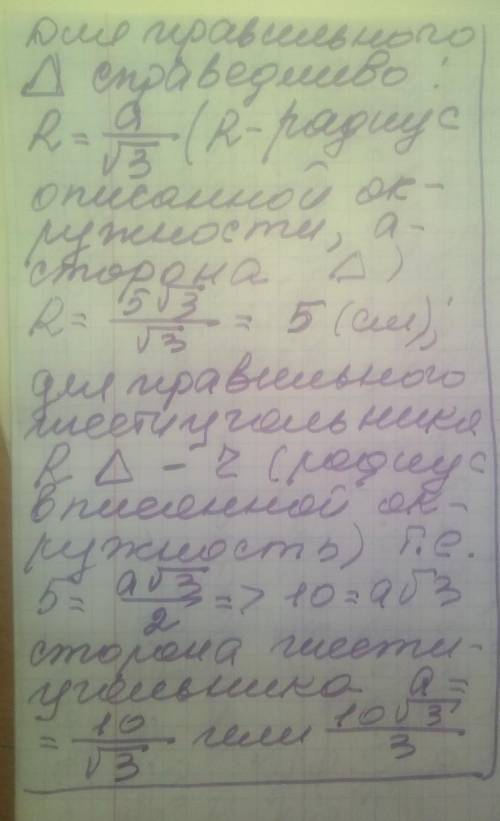 Для правильного
△ справедливо:
R = a/√3 (R-радиус
описанной ок-
ружности, a-
сторона △)
R = 5√3/√3 = 5 (см);
для правильного
шестиугольника
R △ - r (радиус
вписанной ок-
ружность) т.е.
5 = a√3/2 => 10 = a√3
сторона шести-
угольника a =
= 10/√3 или 10√3/3